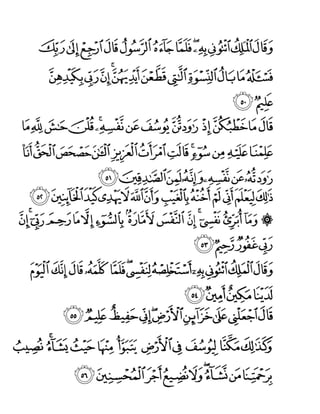 وَقَالَ ٱلْمَلِكُ ٱئْتُونِى بِهِۦ ۖ فَلَمَّا جَآءَهُ ٱلرَّسُولُ قَالَ ٱرْجِعْ إِلَىٰ رَبِّكَ
فَسْـَٔلْهُ مَا بَالُ ٱلنِّسْوَةِ ٱلَّٰتِى قَطَّعْنَ أَيْدِيَهُنَّ ۚ إِنَّ رَبِّى بِكَيْدِهِنَّ
عَلِيمٌ ٥٠
قَالَ مَا خَطْبُكُنَّ إِذْ رَٰوَدتُّنَّ يُوسُفَ عَن نَّفْسِهِۦ ۚ قُلْنَ حَٰشَ لِلَّهِ مَا
عَلِمْنَا عَلَيْهِ مِن سُوٓءٍ ۚ قَالَتِ ٱمْرَأَتُ ٱلْعَزِيزِ ٱلْـَٰٔنَ حَصْحَصَ ٱلْحَقُّ أَنَا۠
رَٰوَدتُّهُۥ عَن نَّفْسِهِۦ وَإِنَّهُۥ لَمِنَ ٱلصَّٰدِقِينَ ٥١
ذَٰلِكَ لِيَعْلَمَ أَنِّى لَمْ أَخُنْهُ بِٱلْغَيْبِ وَأَنَّ ٱللَّهَ لَا يَهْدِى كَيْدَ ٱلْخَآئِنِينَ ٥٢
۞ وَمَآ أُبَرِّئُ نَفْسِىٓ ۚ إِنَّ ٱلنَّفْسَ لَأَمَّارَةٌۢ بِٱلسُّوٓءِ إِلَّا مَا رَحِمَ رَبِّىٓ ۚ إِنَّ
رَبِّى غَفُورٌ رَّحِيمٌ ٥٣
وَقَالَ ٱلْمَلِكُ ٱئْتُونِى بِهِۦٓ أَسْتَخْلِصْهُ لِنَفْسِى ۖ فَلَمَّا كَلَّمَهُۥ قَالَ إِنَّكَ ٱلْيَوْمَ
لَدَيْنَا مَكِينٌ أَمِينٌ ٥٤
قَالَ ٱجْعَلْنِى عَلَىٰ خَزَآئِنِ ٱلْأَرْضِ ۖ إِنِّى حَفِيظٌ عَلِيمٌ ٥٥
وَكَذَٰلِكَ مَكَّنَّا لِيُوسُفَ فِى ٱلْأَرْضِ يَتَبَوَّأُ مِنْهَا حَيْثُ يَشَآءُ ۚ نُصِيبُ
بِرَحْمَتِنَا مَن نَّشَآءُ ۖ وَلَا نُضِيعُ أَجْرَ ٱلْمُحْسِنِينَ ٥٦